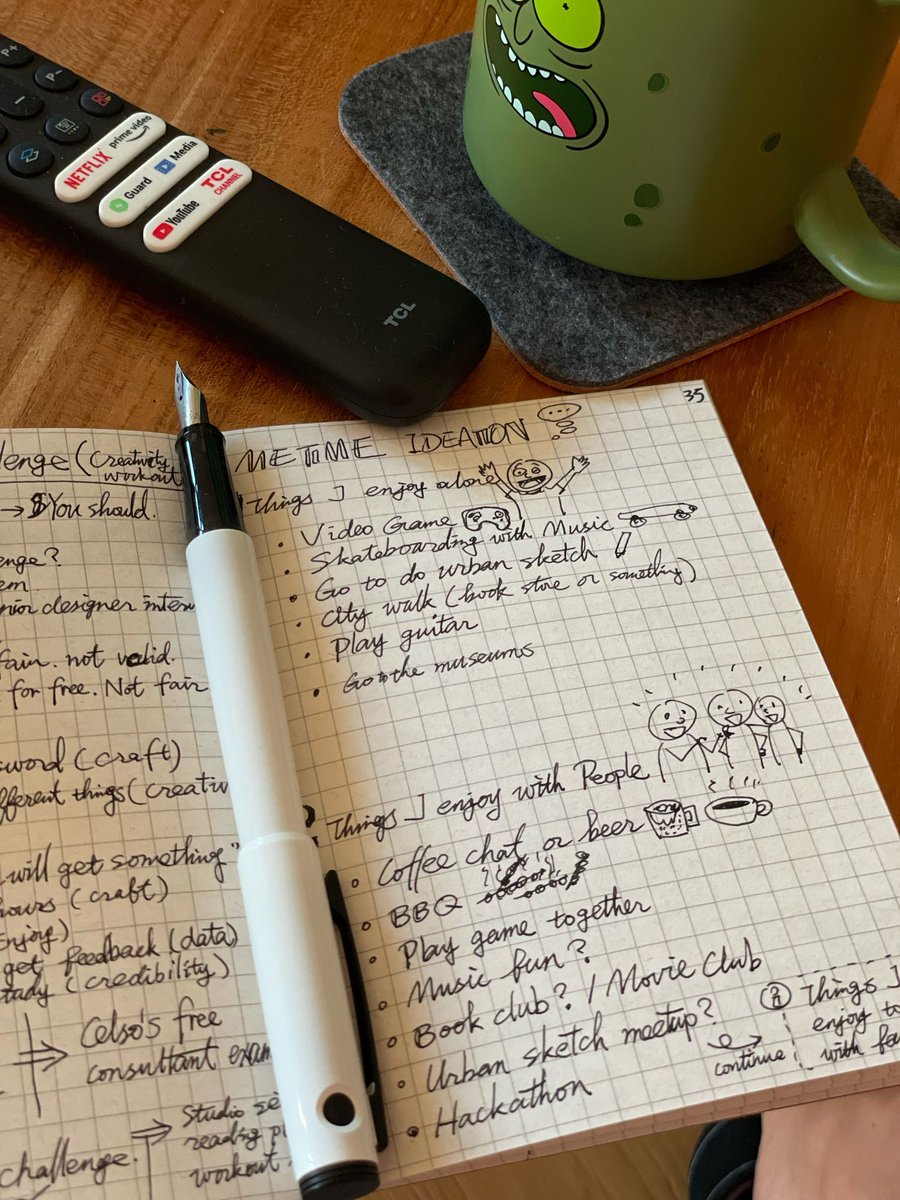 P+
P-
NETFLIX
prime video
Guard
Media
YouTube
TCL
CHANNEL
TCL
35
lenge (Creativity
workout
→ You should.
enge?
em
nior designer inter
fair. not valid.
for free. Not fair
sword (craft)
fferent things (creativ
will get something"
hours (craft)
Enjoy)
get feedback (data)
tady (credibility)
⇒ Celso's free
consultant exam
challenge.
⇒ Studio se
reading p
workout.
ME TIME IDEATION
Things I enjoy alone
• Video Game
• Skateboarding with Music
• Go to do urban sketch
• City walk (book store or something)
• Play guitar
• Go to the museums
Things I enjoy with People
• Coffee chat or beer
• BBQ
• Play game together
• Music fun?
• Book club? / Movie Club
• Urban sketch meetup?
• Hackathon
continue
Things I
enjoy to
with fa